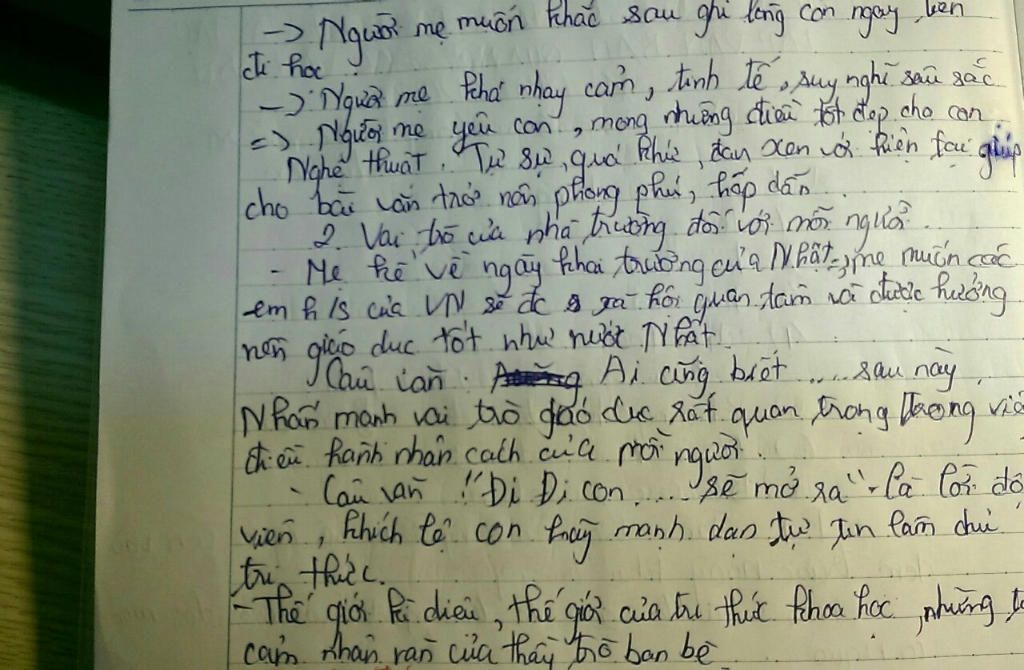 -> Người mẹ muốn khắc sau ghi lòng con ngày
đi học
-> Người mẹ khá nhạy cảm, tinh tế, suy nghĩ sâu sắc
=> Người mẹ yêu con, mong những điều tốt đẹp cho con
Nghệ thuật. Tự sự, quá khứ, đan xen với hiện tại giúp
cho bài văn trở nên phong phú, hấp dẫn.
2. Vai trò của nhà trường đối với mỗi người.
- Mẹ kể về ngày khai trường của Nhật => mẹ muốn các
em h/s của VN sẽ đc xã hội quan tâm và được hưởng
nền giáo dục tốt như nước Nhật.
Câu văn. Ai cũng biết .... sau này.
Nhấn mạnh vai trò giáo dục rất quan trọng trong
điều hành nhân cách của mỗi người.
- Câu văn "Đi Đi con .... sẽ mở ra" - là lời
viên, khích lệ con hãy mạnh dạn tự tin làm chủ
tri thức.
- Thế giới kì diệu, thế giới của tri thức khoa học, những
cảm nhận của thầy trò bạn bè